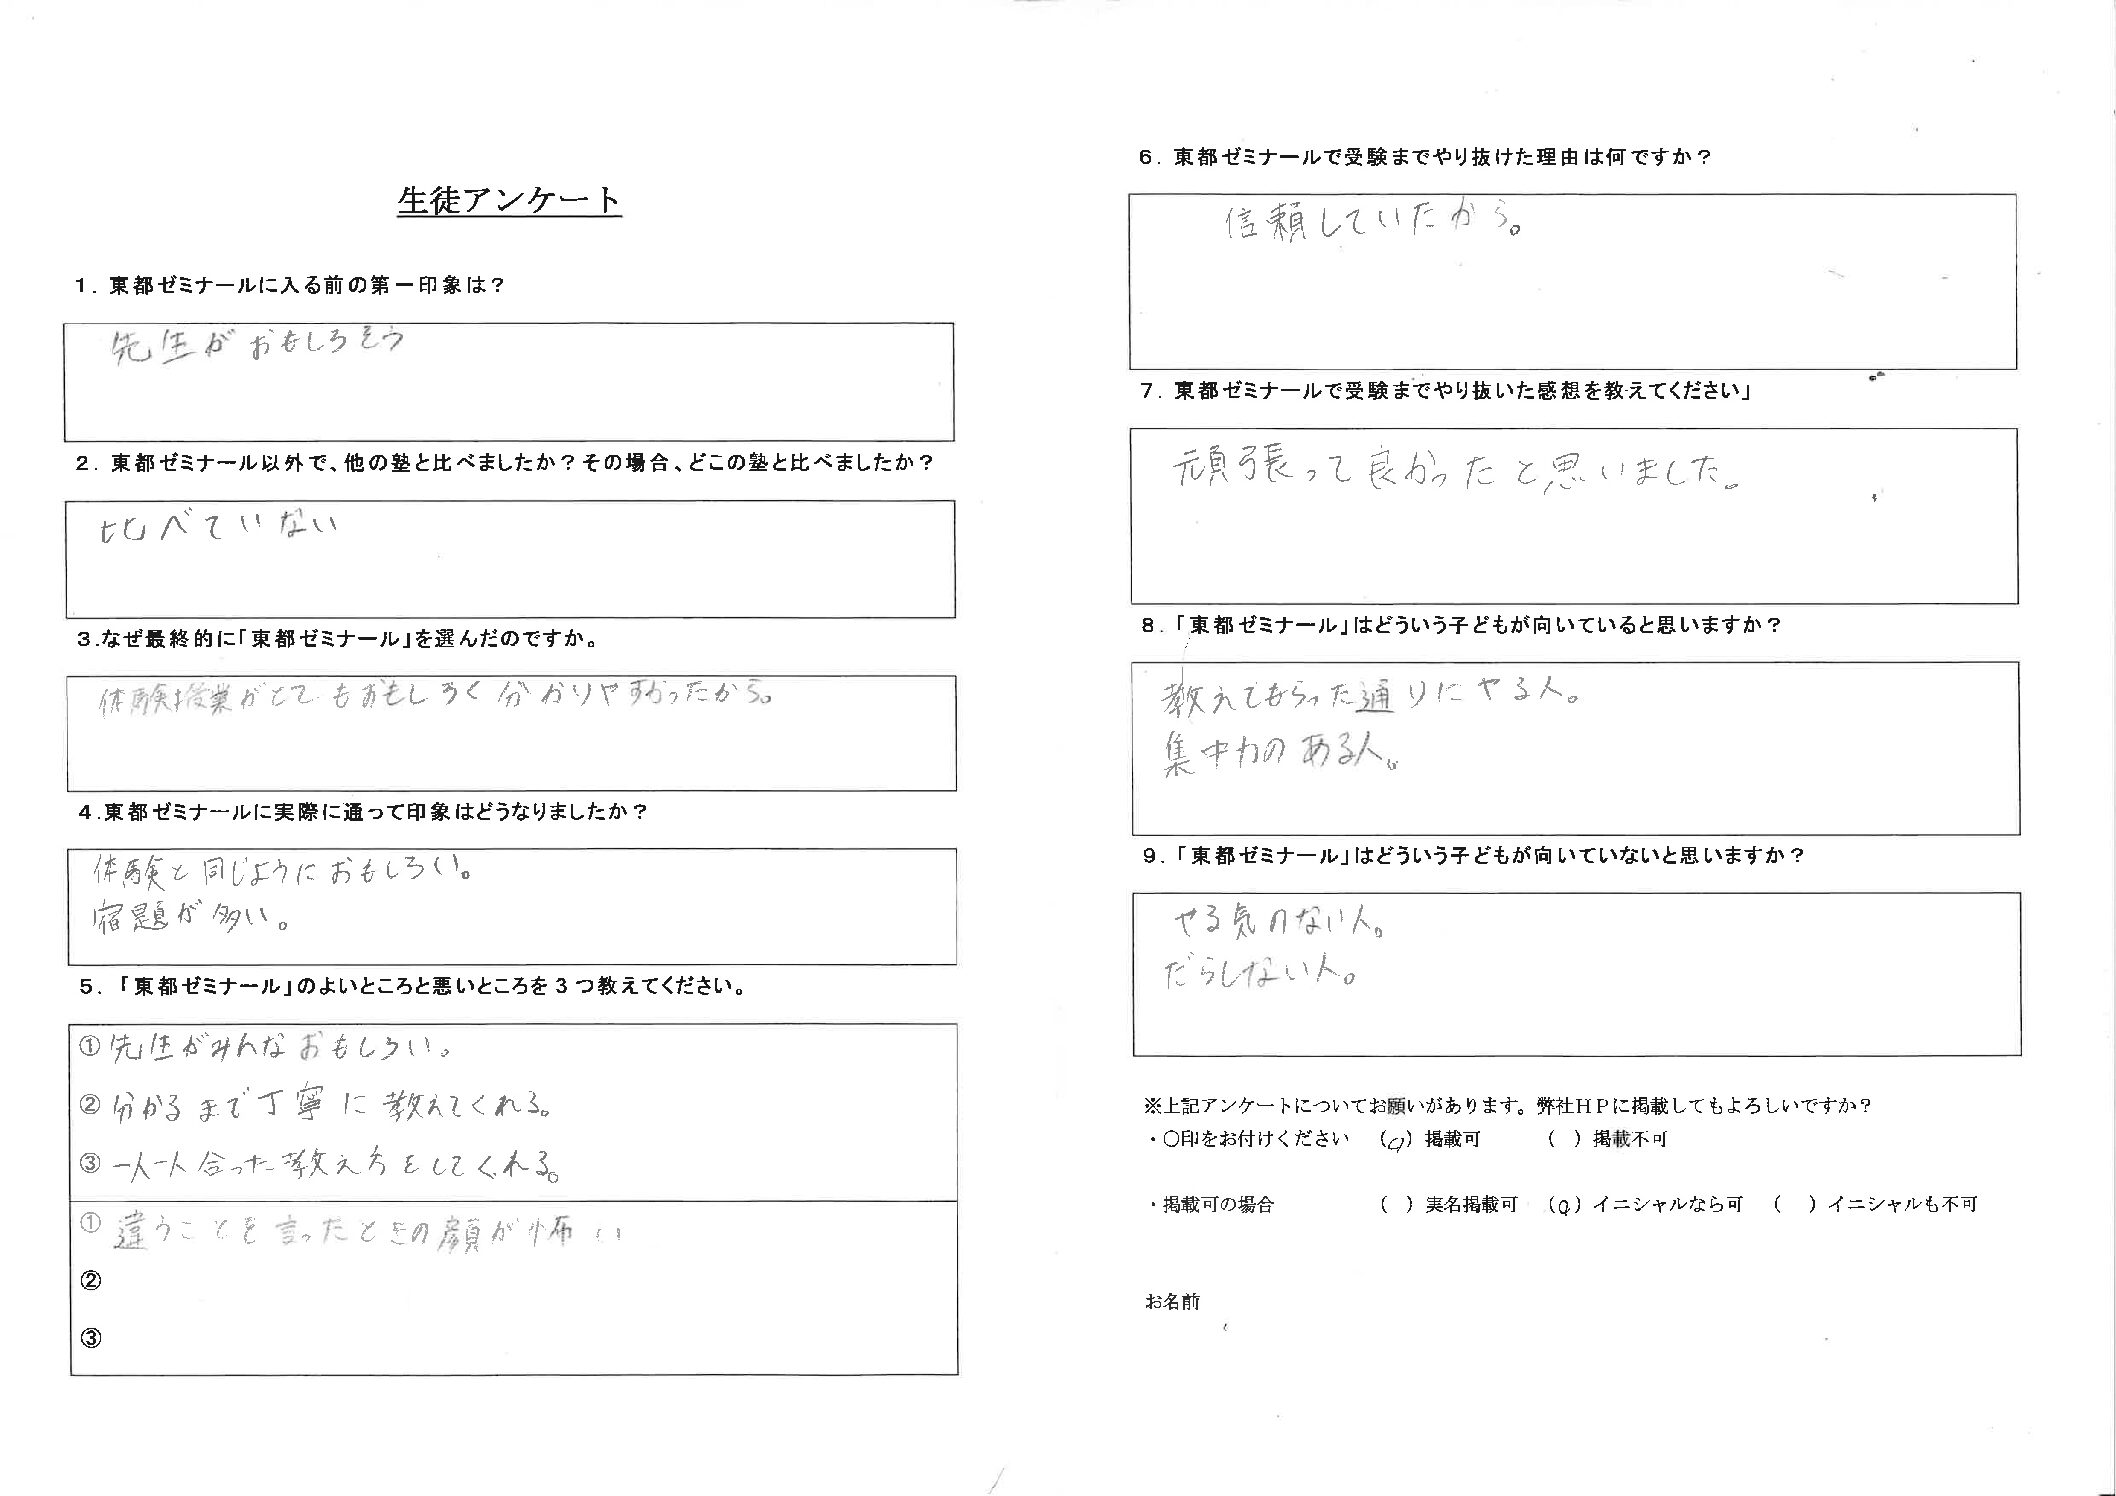 生徒アンケート
1. 東都ゼミナールに入る前の第一印象は?
先生がおもしろそう
2. 東都ゼミナール以外で、他の塾と比べましたか?その場合、どこの塾と比べましたか?
比べていない
3.なぜ最終的に「東都ゼミナール」を選んだのですか。
体験授業がとてもおもしろく分かりやすかったから。
4.東都ゼミナールに実際に通って印象はどうなりましたか?
体験と同じようにおもしろい。
宿題が多い。
5. 「東都ゼミナール」のよいところと悪いところを3つ教えてください。
①先生がみんなおもしろい。
②分かるまで丁寧に教えてくれる。
③一人一人合った教え方をしてくれる。
①違うことを言ったときの顔が怖い
②
③
6. 東都ゼミナールで受験までやり抜けた理由は何ですか?
信頼していたから。
7. 東都ゼミナールで受験までやり抜いた感想を教えてください」
頑張って良かったと思いました。
8.「東都ゼミナール」はどういう子どもが向いていると思いますか?
教えてもらった通りにやる人。
集中力のある人。
9.「東都ゼミナール」はどういう子どもが向いていないと思いますか?
やる気のない人。
だらしない人。
※上記アンケートについてお願いがあります。弊社HPに掲載してもよろしいですか?
・〇印をお付けください (○) 掲載可 ( ) 掲載不可
・掲載可の場合 ( ) 実名掲載可 (○) イニシャルなら可 ( ) イニシャルも不可
お名前